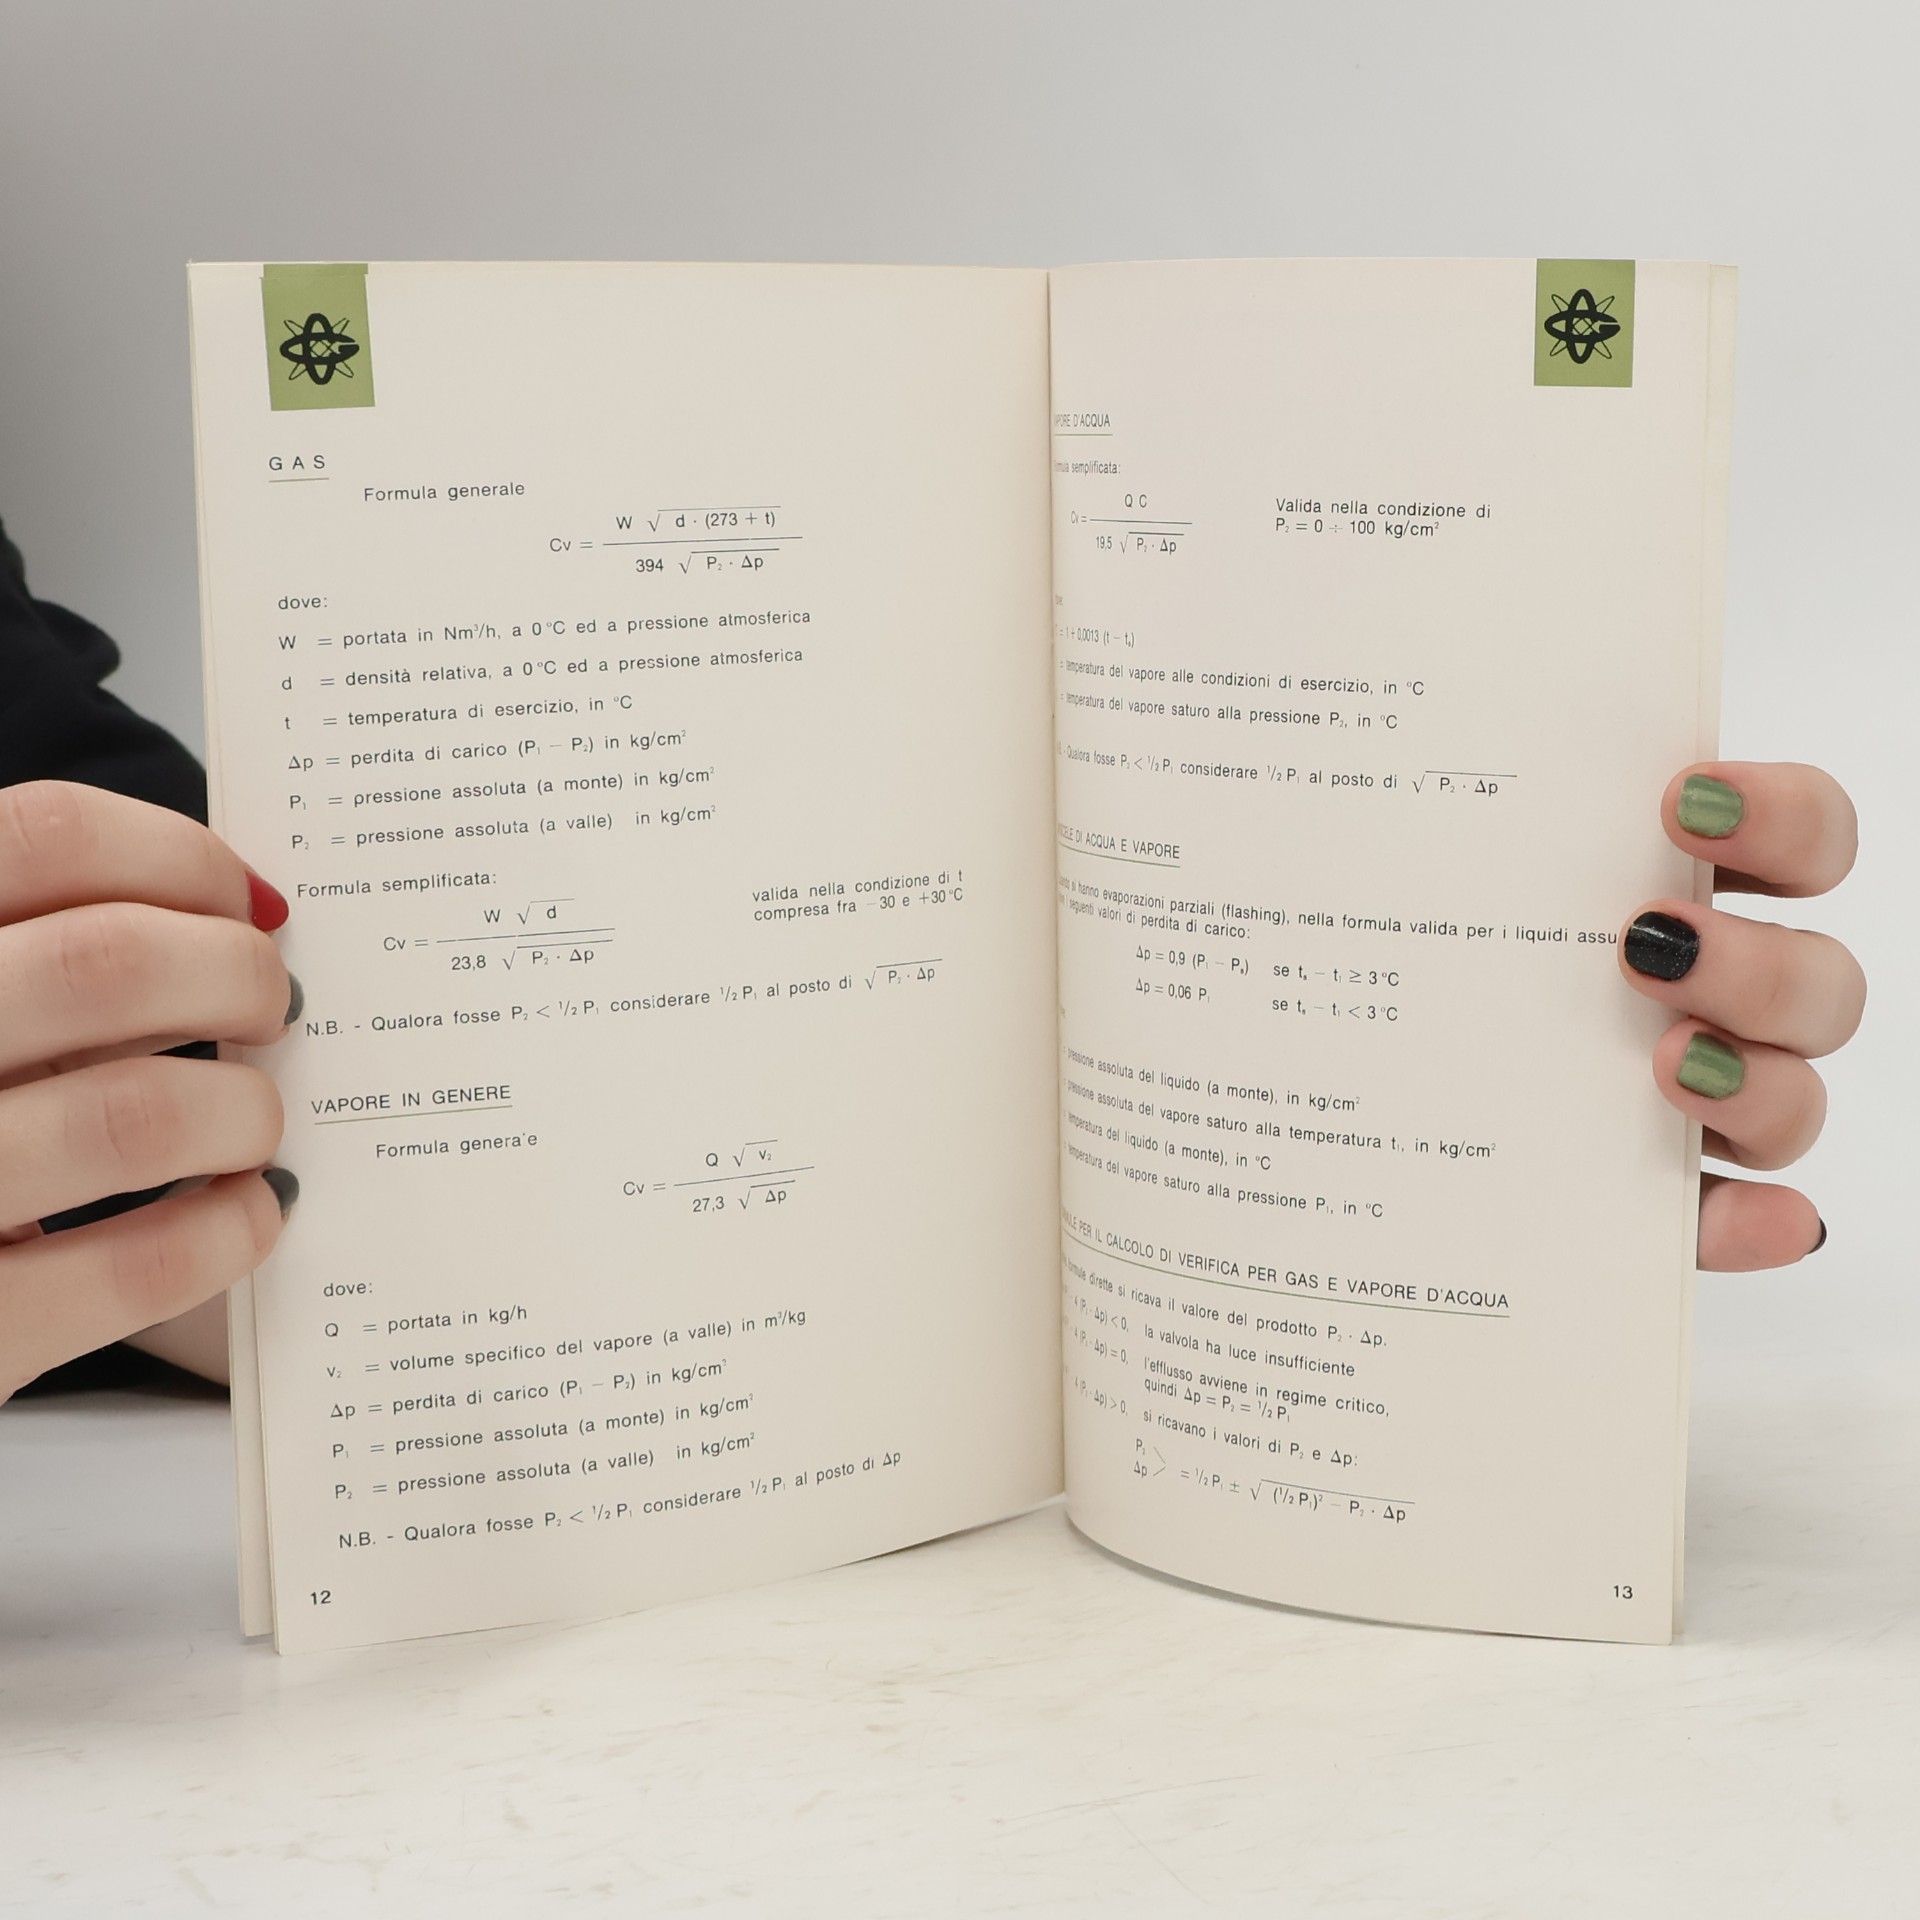 GAS
Formula generale
Cv = W √ d · (273 + t) / 394 √ P₂ · Δp
dove:
W = portata in Nm³/h, a 0 °C ed a pressione atmosferica
d = densità relativa, a 0 °C ed a pressione atmosferica
t = temperatura di esercizio, in °C
Δp = perdita di carico (P₁ − P₂) in kg/cm²
P₁ = pressione assoluta (a monte) in kg/cm²
P₂ = pressione assoluta (a valle) in kg/cm²
Formula semplificata:
Cv = W √ d / 23,8 √ P₂ · Δp
valida nella condizione di t
compresa fra −30 e +30 °C
N.B. - Qualora fosse P₂ < ¹/₂ P₁ considerare ¹/₂ P₁ al posto di √ P₂ · Δp
VAPORE IN GENERE
Formula generale
Cv = Q √ v₂ / 27,3 √ Δp
dove:
Q = portata in kg/h
v₂ = volume specifico del vapore (a valle) in m³/kg
Δp = perdita di carico (P₁ − P₂) in kg/cm²
P₁ = pressione assoluta (a monte) in kg/cm²
P₂ = pressione assoluta (a valle) in kg/cm²
N.B. - Qualora fosse P₂ < ¹/₂ P₁ considerare ¹/₂ P₁ al posto di Δp
12
D'ACQUA
semplificata:
Cv = Q C / 19,5 √ P₂ · Δp
Valida nella condizione di
P₂ = 0 ÷ 100 kg/cm²
= 1 + 0,0013 (t − tₛ)
= temperatura del vapore alle condizioni di esercizio, in °C
= temperatura del vapore saturo alla pressione P₂, in °C
- Qualora fosse P₂ < ¹/₂ P₁ considerare ¹/₂ P₁ al posto di √ P₂ · Δp
DI ACQUA E VAPORE
si hanno evaporazioni parziali (flashing), nella formula valida per i liquidi assu
seguenti valori di perdita di carico:
Δp = 0,9 (P₁ − Pₛ) se tₛ − t₁ ≥ 3 °C
Δp = 0,06 P₁ se tₛ − t₁ < 3 °C
pressione assoluta del liquido (a monte), in kg/cm²
pressione assoluta del vapore saturo alla temperatura t₁, in kg/cm²
temperatura del liquido (a monte), in °C
temperatura del vapore saturo alla pressione P₁, in °C
PER IL CALCOLO DI VERIFICA PER GAS E VAPORE D'ACQUA
formule dirette si ricava il valore del prodotto P₂ · Δp.
− 4 (P₂ · Δp) < 0, la valvola ha luce insufficiente
− 4 (P₂ · Δp) = 0, l'efflusso avviene in regime critico,
quindi Δp = P₂ = ¹/₂ P₁
4 (P₂ · Δp) > 0, si ricavano i valori di P₂ e Δp:
P₂
Δp > = ¹/₂ P₁ ± √ (¹/₂ P₁)² − P₂ · Δp
13